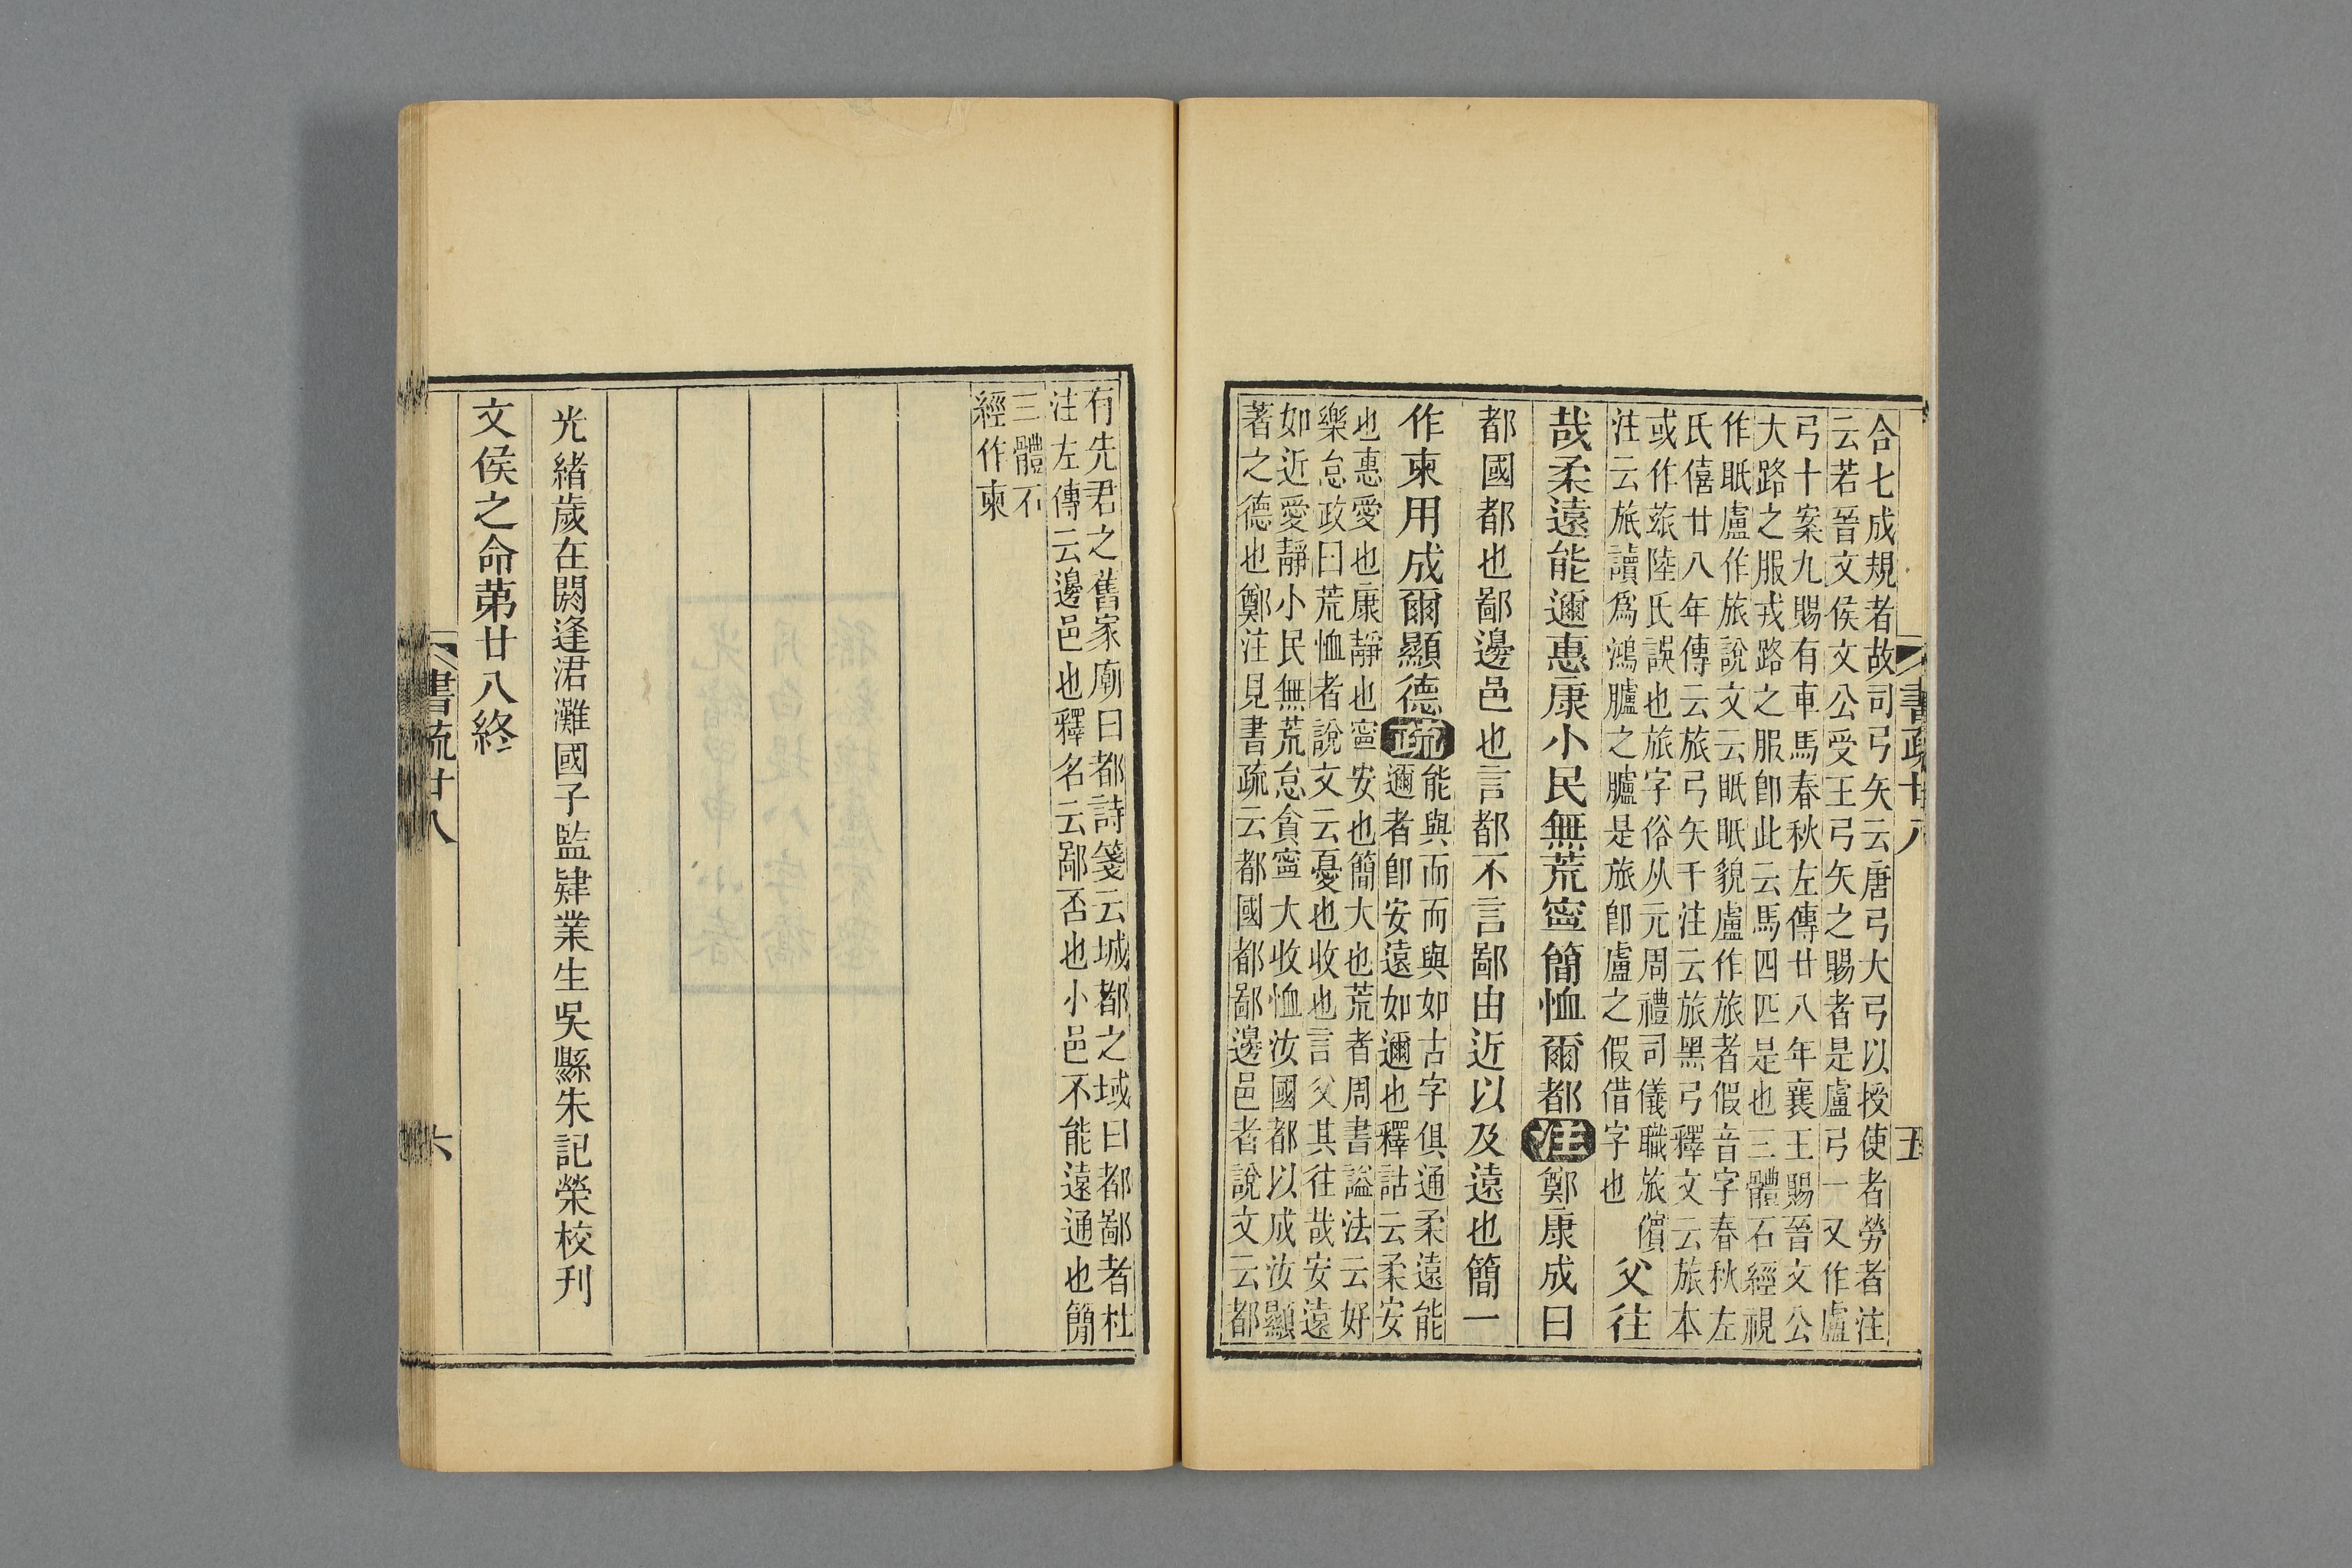 合七成規者故司弓矢云唐弓大弓以授使者勞者注
云若晉文侯文公受王弓矢之賜者是盧弓一又作盧
弓十案九賜有車馬春秋左傳廿八年襄王賜晉文公
大路之服戎路之服卽此云馬四匹是也三體石經視
作眂盧作旅說文云眂眂貌盧作旅者假音字春秋左
氏僖廿八年傳云旅弓矢千注云旅黑弓釋文云旅本
或作玈陸氏誤也旅字俗从元周禮司儀職旅儐
注云旅讀爲鴻臚之臚是旅卽盧之假借字也
父往
哉柔遠能邇惠康小民無荒寍簡恤爾都注鄭康成曰
都國都也鄙邊邑也言都不言鄙由近以及遠也簡一
作柬用成爾顯德疏
能與而而與如古字俱通柔遠能
邇者卽安遠如邇也釋詁云柔安
也惠愛也康靜也寍安也簡大也荒者周書謚法云好
樂怠政曰荒恤者說文云憂也收也言父其往哉安遠
如近愛靜小民無荒怠貪寍大收恤汝國都以成汝顯
著之德也鄭注見書疏云都國都鄙邊邑者說文云都
書疏廿八
五
有先君之舊家廟曰都詩箋云城都之域曰都鄙者杜
注左傳云邊邑也釋名云鄙否也小邑不能遠通也簡
三體石
經作柬
光緒歲在閼逢涒灘國子監肄業生吳縣朱記榮校刋
文侯之命苐廿八終
書疏廿八
六